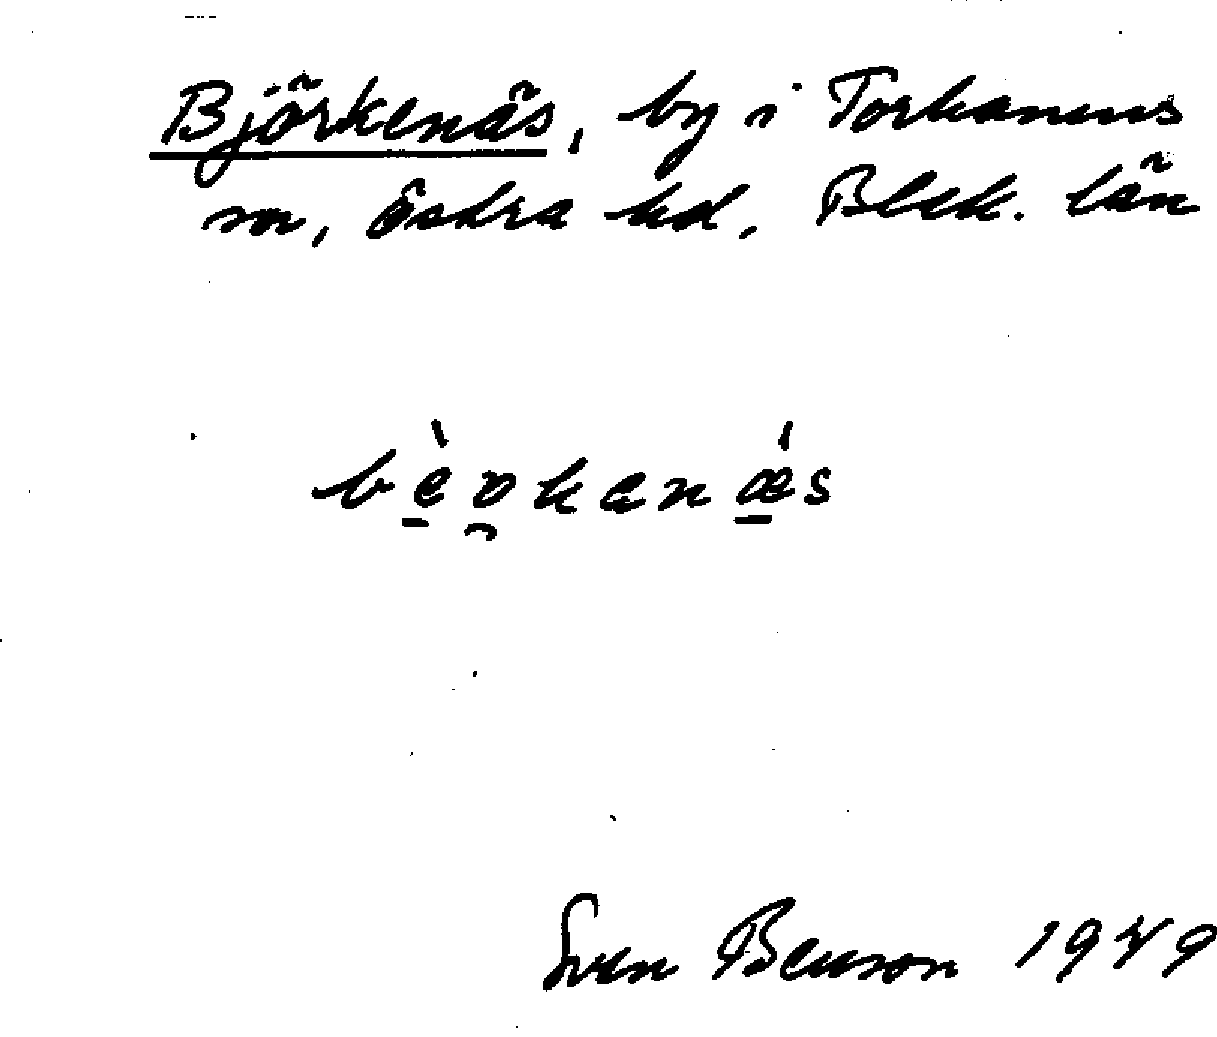 Björkenäs, by i Torhamns
sn, Östra hd, Blek. län
bèo̯kanǽs
Sven Benson 1949